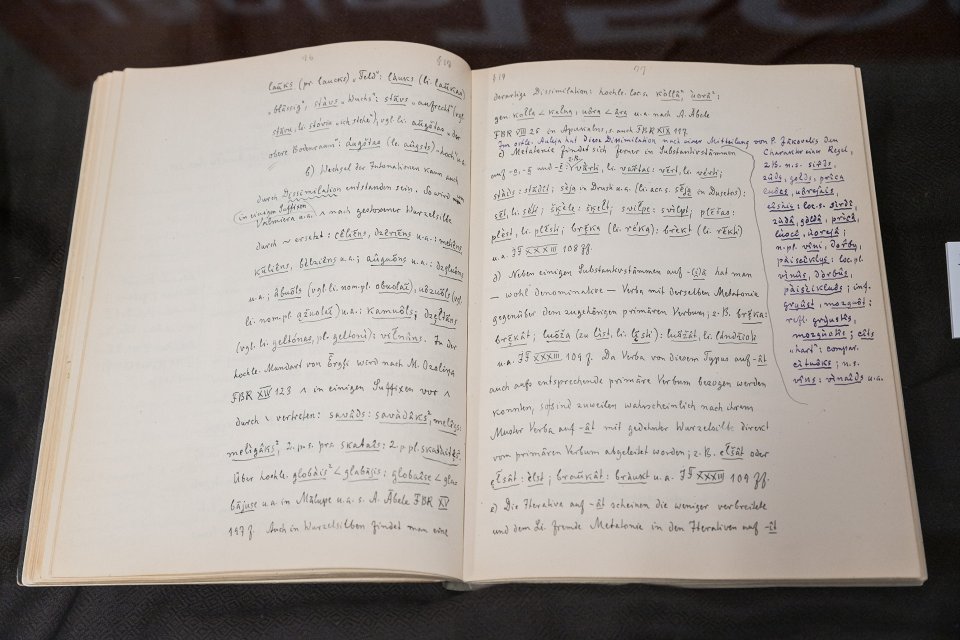 76 § 19
laũks (pr. laucks) „Feld": laũks (li. laũkas)
„blässig", stāvs „Wuchs": stāvs „aufrecht" (vgl.
stāvu, li. stóviu „ich stehe"), vgl. li. aũgštas „der
obere Bodenraum": áugštas (le. aûgsts) „hoch" u. a.
b) Wechsel der Intonationen kann auch
durch Dissimilation entstanden sein. So wird
(in einigen Suffixen
Valmiera u. a. ^ nach gestossener Wurzelsilbe
durch ~ ersetzt: cêliẽns, dzêriẽns u. a.: metiêns
kûliẽns, bêlziẽns u. a.; aûguõns u. a.: dzeguôns
u. a.; âbuõls (vgl. li. nom. pl. obuolaĩ), uôzuõls (vgl.
li. nom. pl. ąžuolaĩ) u. a.: kamuôls; dzeltãns
(vgl. li. geltónas, pl. geltonì): vilnâns. In der
hochle. Mundart von Ērgļi wird nach M. Ozoliņa
FBR XIV 123 ^ in einigen Suffixen vor ^
durch \ vertreten: savâds: savàdâks², melîgs:
melìgâks², 2. p. s. prs. skatâis: 2. p. pl. skatàitês.
Über hochle. globàis² < glabâjis: globuse < glabājuse
u. a. in Mālupe u. a. s. A. Ābele FBR XV
147 f. Auch in Wurzelsilben findet man eine
§ 19 77
derartige Dissimilation: hochle. loc. s. kòllâ², ùorâ²:
gen. kolla < kalna, uôra < âra u. a. nach A. Ābele
FBR VIII 25 in Apukalns, s. auch FBR XIX 117.
Im ostle. Auleja hat diese Dissimilation nach einer Mitteilung von P. Jakovelis den
Charakter einer Regel,
z. B. n. s. sirds,
zùds, golds, prica
luôcs, ùorejais,
loc. s. sirdî,
zùdâ, goldâ, pricâ,
luocî, uorejâ;
n. pl. vìni, dorby,
loc. pl.
vinûs, dorbûs,
inf.
gryûst, mozguôt:
refl. gryustîs,
mozguotîs; cîts
„hart": compar.
cituoks; n. s.
vìns: vinaids u. a.
c) Metatonie findet sich ferner in Substantivstämmen
auf -o-, -ā- und -ē-: z. B. vãrti, li. vartas: vērt, li. vérti;
stãds: stâdît; sēja in Drusti u. a. (li. acc. s. sėją in Dusetos):
sēt, li. sėti; škèle: šķelt; svilpe: svilpt; plẽšas:
plêst, li. plėšti; brę̃ka (li. rėka): brêkt (li. rėkti)
u. a. IF XXXIII 108 ff.
d) Neben einigen Substantivstämmen auf -(i)ā hat man
— wohl denominale — Verba mit derselben Metatonie
gegenüber dem zugehörigen primären Verbum; z. B. brę̃ka:
brę̃kât; luõža (zu līst, li. lį̃sti): luõžât, li. landžióti
u. a. IF XXXIII 109 f. Da Verba von diesem Typus auf -ât
auch aufs entsprechende primäre Verbum bezogen werden
konnten, so sind zuweilen wahrscheinlich nach ihrem
Muster Verba auf -ât mit gedehnter Wurzelsilbe direkt
vom primären Verbum abgeleitet worden; z. B. elšât oder
elsât: èlst; braũkât: bràukt u. a. IF XXXIII 109 ff.
e) Die Iterativa auf -ât scheinen die weniger verbreitete
und dem Li. fremde Metatonie in den Iterativen auf -ît